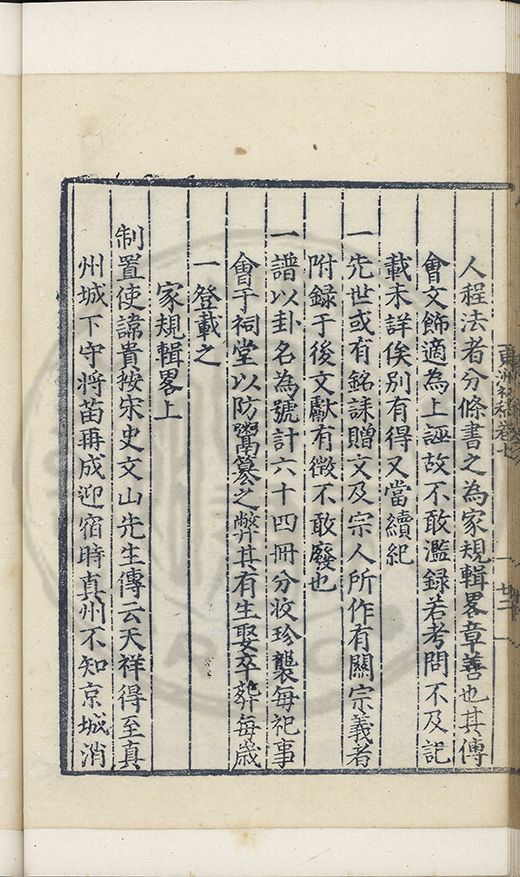 人程法者分條書之為家規輯畧章善也其傳
會文飾適為上誣故不敢濫録若考問不及記
載未詳俟别有得又當續紀
一先世或有銘誄贈文及宗人所作有關宗義者
附録于後文獻有徴不敢廢也
一譜以卦名為號計六十四冊分收珍襲每祀事
會于祠堂以防鬻篡之弊其有生娶卒葬每歳
一登載之
家規輯畧上
制置使諱貴按宋史文山先生傳云天祥得至真
州城下守將苗再成迎宿時真州不知京城消